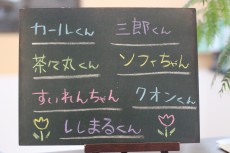 カールくん 三郎くん
茶々丸くん ソフィちゃん
すいれんちゃん クオンくん
ししまるくん